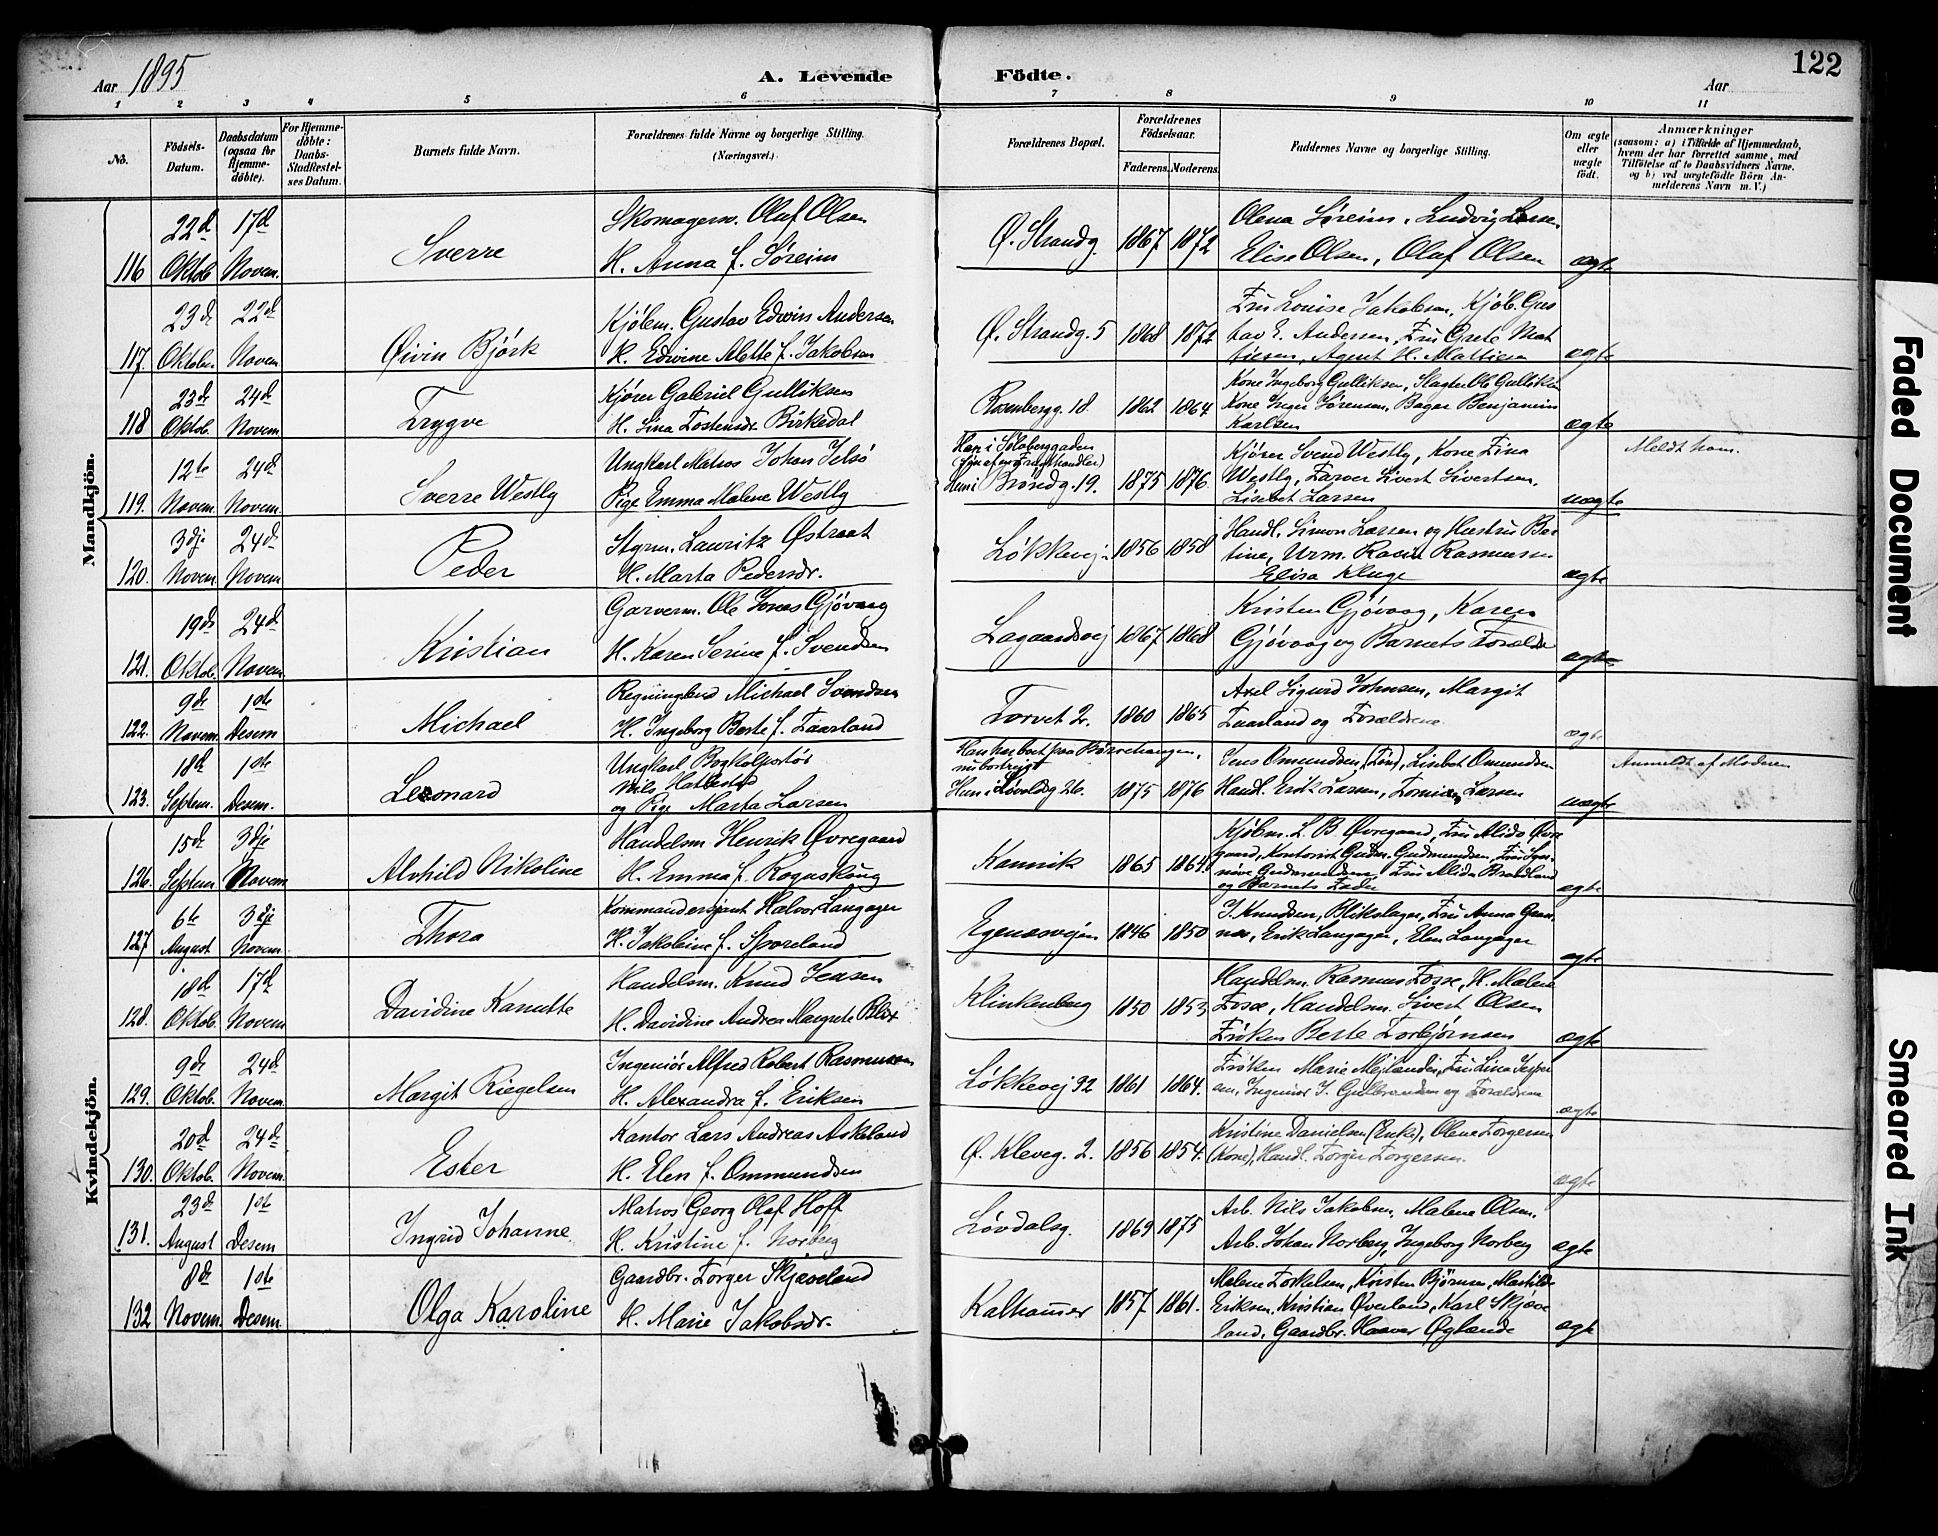 122
Aar 1895
A. Levende Födte.
Aar
1 2 3 4 5 6 7 8 9 10 11
No.
Födsels-Datum.
Daabsdatum (ogsaa for Hjemmedöbte).
For Hjemmedöbte: Daabs-Stadfæstelses Datum.
Barnets fulde Navn.
Forældrenes fulde Navne og borgerlige Stilling.
(Næringsvei.)
Forældrenes Bopæl.
Forældrenes Födselsaar.
Faderens. Moderens.
Faddernes Navne og borgerlige Stilling.
Om ægte eller uægte födt.
Anmærkninger
(saasom: a) i Tilfælde af Hjemmedaab,
hvem der har forrettet samme, med
Tilföielse af to Daabsvidners Navne.
og b) ved uægtefödte Börn An-
melderens Navn m. V.)
Mandkjön.
116 22d Oktob. 17d Novem. Sverre
Skomagersv. Oluf Olsen
H. Anna f. Søreim
Ø. Strandg. 1867 1872
Olena Søreim, Ludvig Larsen
Elise Olsen, Olaf Olsen
ægte
117. 23d Oktober 22d Novem. Øivin Bjørk
Kjøbm. Gustav Edwin Andersen
H. Edwine Alette f. Jakobsen
Ø. Strandg. 5 1868 1872
Fru Louise Jakobsen, Kjøb. Gus
tav E. Andersen, Fru Grete Mat
tiesen, Agent H. Mattisen
ægte
118 23d Oktob. 24d Novem. Trygve
Kjører Gabriel Gulliksen
H. Sina Tostensdr Birkedal
Rosenbergg. 18. 1862 1864
Kone Ingeborg Gulliksen, Slagter Ole Gulliksen
Kone Inger Sørensen, Bager Benjamin
Karlsen
ægte
119. 12te Novem. 24d Novem. Sverre Westly
Ungkarl Matros Johan Jelsø
Pige Emma Malene Westly
Han i
Hun i Brøndg. 19. 1875 1876
Kjører Svend Westly, Kone Lina
Westly, Farver Sivert Sivertsen,
Lisebet Larsen
uægte
Meldt ham.
120. 3dje Novem. 24d Novem. Peder
Styrm. Lauritz Østraat
H. Marta Pedersdr.
Løkkevej 1856 1858
Handl. Simon Larsen og Hustru Ber
tine, Urm. Rasmussen
Elisa Kluge
ægte
121. 19de Oktob. 24d Novem. Kristian
Garverm. Ole Jonas Gjøvaag
H. Karen Serine f. Svendsen
Lagaardsvej 1867 1868
Kristen Gjøvaag, Karen
Gjøvaag og Barnets Foræld
ægte
122. 9de Novem. 1ste Desem Michael
Regningsbud Michael Svendsen
H. Ingeborg Berte f. Faarland
Torvet 2. 1860 1865
Axel Sigurd Johnsen, Margit
Faarland og Forældrene
ægte
123. 18d Septem. 1ste Desem. Leonard
Ungkarl Bogkolportør
Nils Hatlestad
og Pige Marta Larsen
Han har bort paa
Hun i Løvoldsg 26. 1875 1876
Jens Omundsen, Lisebet Omundsen
Handl. Erik Larsen, Larsen
uægte
Anmeldt af Moderen
Kvindekjön.
126. 15d Septem 3dje Novem Alvhild Nikoline
Handelsm. Henrik Øvregaard
H. Emma f. Roguskoug
Kannik 1865 1864.
Kjøbm. L. B. Øvregaard, Fru Alida Øvre
gaard, Kontorist Gudm. Gudmundsen, Fru Syn
nøve Gudmundsen, Fru Alida Braadland
og Barnets Fader
ægte
127 6te August 3dje Novem. Thora
Kommandersjant Halvor Langager
H. Jakobine f. Sporeland
Egenæsvejen 1846 1850
J. Knudsen, Blikslager, Fru Anna Gran
nes, Erik Langager, Elen Langager
ægte
128. 18d Oktob. 17d Novem Davidine Kanutte
Handelsm. Knud Jensen
H. Davidine Andrea Margrete Blix
Klinkenberg 1850 1853
Handelsm. Rasmus Fosse, H. Malene
Fosse, Handelsm. Sivert Olsen
Frøken Berte Torbjørnsen
ægte
129. 9de Oktob. 24d Novem. Margit Riegelsen
Ingeniør Alfred Robert Rasmussen
H. Alexandra f. Eriksen
Løkkevej 32 1861 1864.
Frøken Marie Mejlænder, Fru Lina Jesper
sen, Ingeniør J. Gulbrandsen og Forældrene
ægte
130. 20d Oktob. 24d Novem. Ester
Kantor Lars Andreas Askeland
H. Elen f. Ommundsen
Ø. Kleveg. 2. 1856 1854.
Kristine Danielsen (Enke), Olene Torgersen
(Kone), Handl. Torger Torgersen.
ægte
131. 23d August 1ste Desem Ingrid Johanne
Matros Georg Olaf Hoff
H. Kristine f. Norberg
Løvdalsg. 1869 1875
Arb. Nils Jakobsen, Malene Olsen.
Arb. Johan Norberg, Ingeborg Norberg
ægte
132 8de Novem. 1ste Desem. Olga Karoline
Gaardbr. Torger Skjæveland
H. Marie Jakobsdr.
Kalhammer 1857 1861.
Malene Torkelsen, Kirsten Bjørnsen, Martilde
Eriksen, Kristian Øverland, Karl Skjæve
land, Gaardbr. Haaver Øglænde
ægte
Faded Document
Smeared Ink